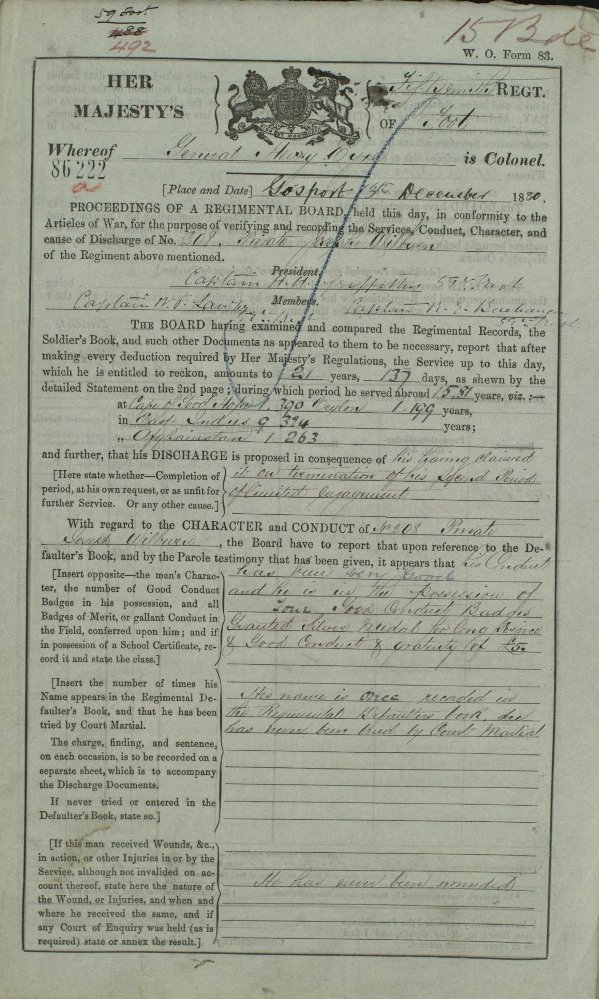 59 Foot
488
492
15 Bde
W. O. Form 83.
HER
MAJESTY'S
REGT.
OF Foot
Whereof General is Colonel.
86222
[Place and Date] Gosport December 1880.
PROCEEDINGS OF A REGIMENTAL BOARD, held this day, in conformity to the
Articles of War, for the purpose of verifying and recording the Services, Conduct, Character, and
cause of Discharge of No. 208 Private Joseph Wilburn
of the Regiment above mentioned.
President.
Captain 59th Foot
Members.
Captain W. Captain
THE BOARD having examined and compared the Regimental Records, the
Soldier's Book, and such other Documents as appeared to them to be necessary, report that after
making every deduction required by Her Majesty's Regulations, the Service up to this day,
which he is entitled to reckon, amounts to 21 years, 137 days, as shewn by the
detailed Statement on the 2nd page; during which period he served abroad years, viz.:—
at Cape of Good Hope 1 390 Ceylon 1 199 years,
in East Indies 9 334 years;
„ Afghanistan 1 263
and further, that his DISCHARGE is proposed in consequence of his having claimed
[Here state whether—Completion of it on termination of his Second Period
period, at his own request, or as unfit for of limited engagement
further Service. Or any other cause.]
With regard to the CHARACTER and CONDUCT of No 208 Private
Joseph Wilburn, the Board have to report that upon reference to the De-
faulter's Book, and by the Parole testimony that has been given, it appears that his Conduct
has been very good
[Insert opposite—the man's Charac-
ter, the number of Good Conduct and he is in the possession of
Badges in his possession, and all four Good Conduct Badges
Badges of Merit, or gallant Conduct in Granted Silver Medal for long Service
the Field, conferred upon him; and if & Good Conduct & gratuity of £5
in possession of a School Certificate, re-
cord it and state the class.]
[Insert the number of times his
Name appears in the Regimental De- His name is once recorded in
faulter's Book, and that he has been the Regimental Defaulters book, he
tried by Court Martial. has never been tried by Court Martial
The charge, finding, and sentence,
on each occasion, is to be recorded on a
separate sheet, which is to accompany
the Discharge Documents.
If never tried or entered in the
Defaulter's Book, state so.]
[If this man received Wounds, &c.,
in action, or other Injuries in or by the
Service, although not invalided on ac-
count thereof, state here the nature of He has never been wounded
the Wound, or Injuries, and when and
where he received the same, and if
any Court of Enquiry was held (as is
required) state or annex the result.]